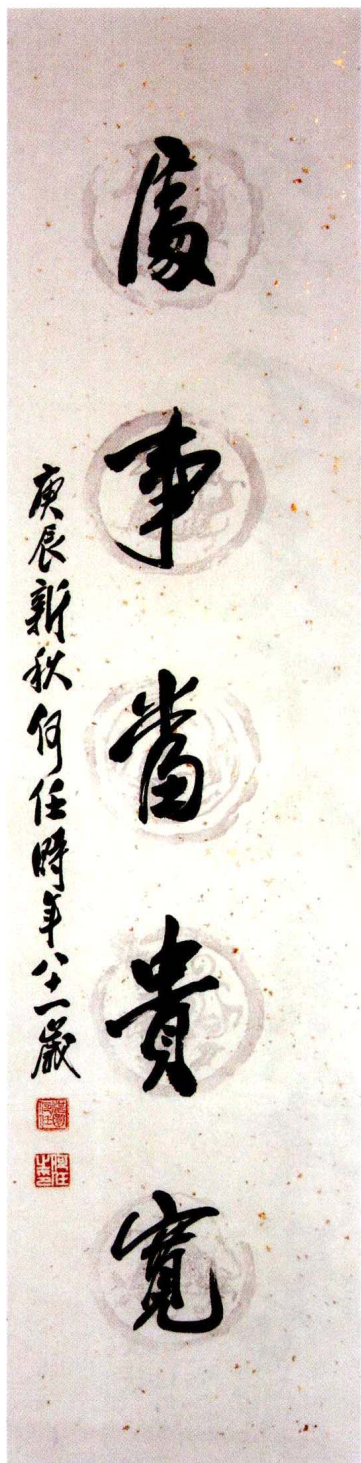 處事當貴寬
庚辰新秋何任時年八十一歲